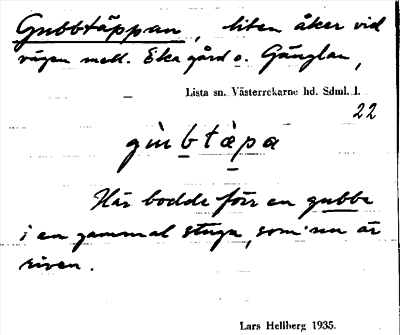 Gubbtäppan, liten åker vid
vägen mell. Eka gård o. Gänglan,
Lista sn. Västerrekarne hd. Sdml. l.
22
gùbtàpa
Här bodde förr en gubbe
i en gammal stuga, som nu är
riven.
Lars Hellberg 1935.